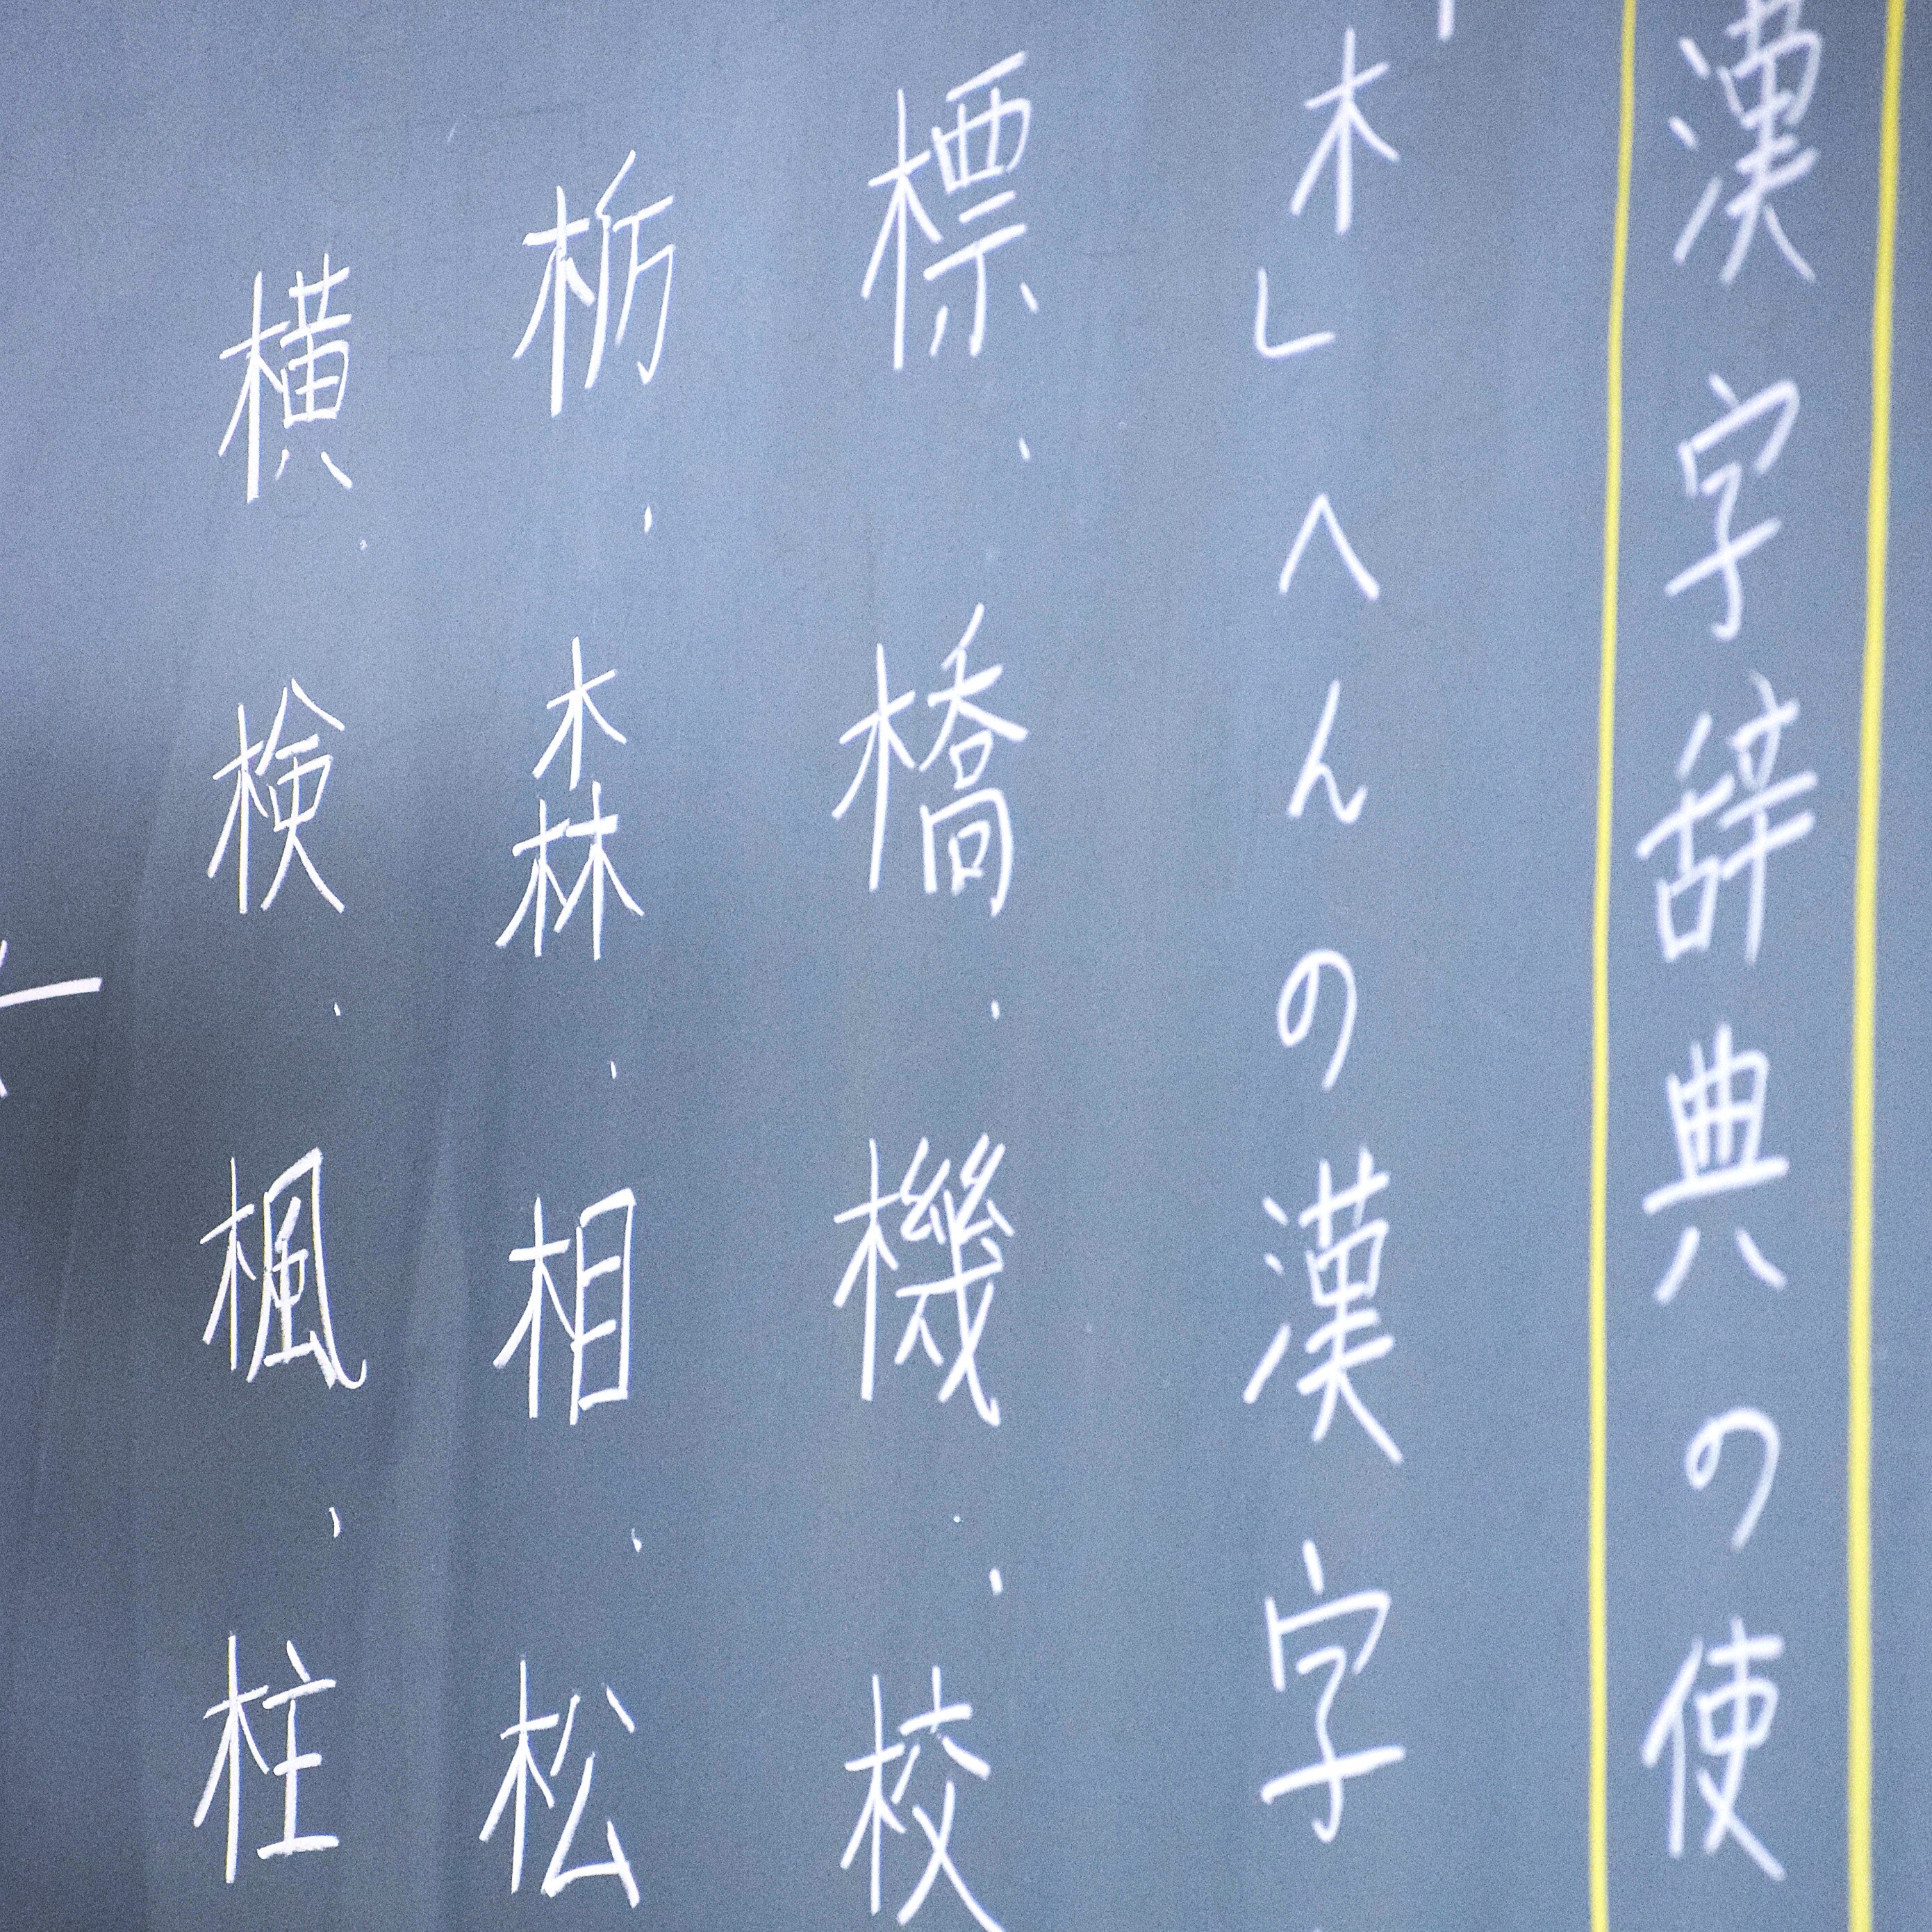 漢字辞典の使
「木」へんの漢字
標、橋、機、校
栃、森、相、松
横、検、楓、柱